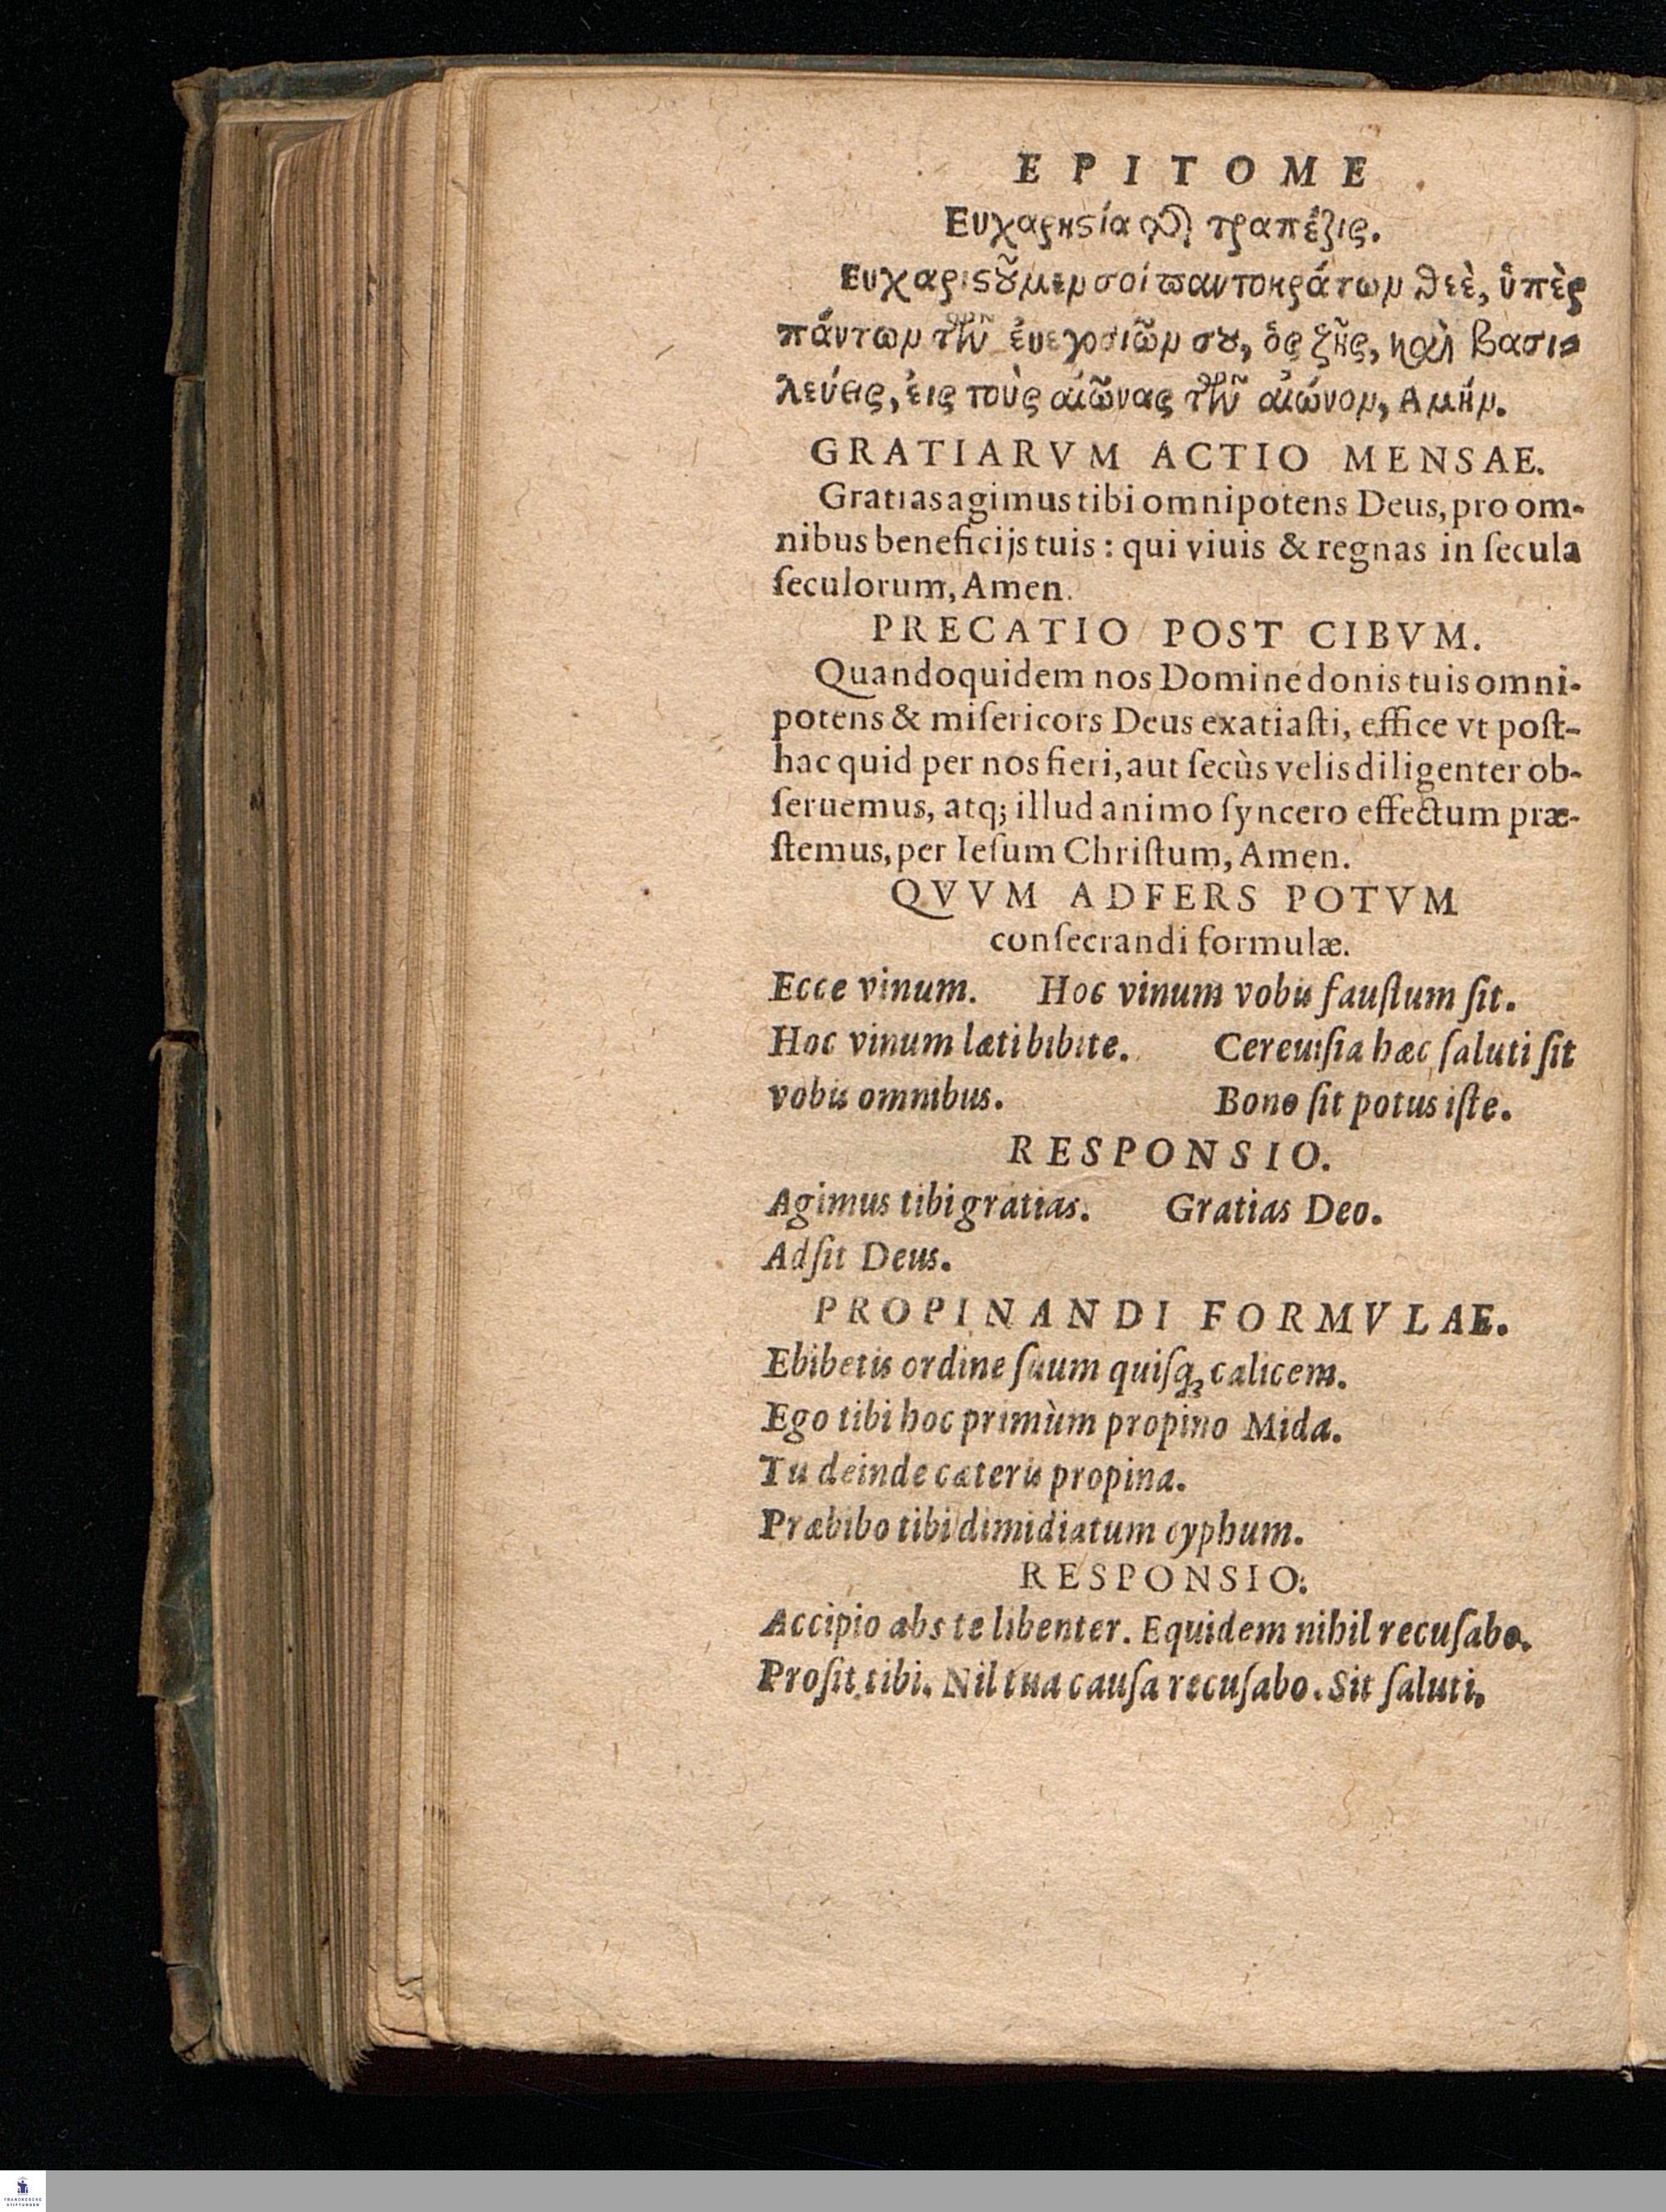 EPITOME
Ευχαρηςία τραπέζις.
Ευχαριςοῦμεν σοί παντοκράτων θεὲ, ὑπὲρ
πάντων τῶν ἐυεργσιῶν σου, ὃς ζῆς, καὶ βασι=
λεύεις, ἐις τοὺς αἰῶνας τῶν αἰώνον, Αμήν.
GRATIARVM ACTIO MENSAE.
Gratias agimus tibi omnipotens Deus, pro om-
nibus beneficijs tuis : qui viuis & regnas in ſecula
ſeculorum, Amen.
PRECATIO POST CIBVM.
Quandoquidem nos Domine donis tuis omni-
potens & miſericors Deus exatiaſti, effice vt poſt-
hac quid per nos fieri, aut ſecùs velis diligenter ob-
ſeruemus, atq; illud animo ſyncero effectum præ-
ſtemus, per Ieſum Chriſtum, Amen.
QVVM ADFERS POTVM
conſecrandi formulæ.
Ecce vinum. Hoc vinum vobis fauſtum ſit.
Hoc vinum læti bibite. Cereuiſia hæc ſaluti ſit
vobis omnibus. Bono ſit potus iſte.
RESPONSIO.
Agimus tibi gratias. Gratias Deo.
Adſit Deus.
PROPINANDI FORMVLAE.
Ebibetis ordine ſuum quiſq; calicem.
Ego tibi hoc primùm propino Mida.
Tu deinde cæteris propina.
Præbibo tibi dimidiatum cyphum.
RESPONSIO:
Accipio abs te libenter. Equidem nihil recuſabo.
Proſit tibi. Nil tua cauſa recuſabo. Sit ſaluti.
FRANCKESCHE
STIFTUNGEN